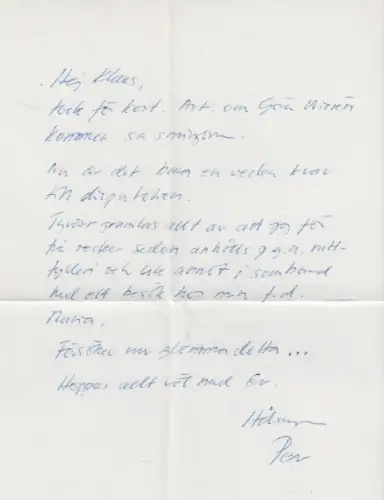 Hej Klaus,
tack för kort. Art. om Göran
kommer så småningom.
Nu är det bara en vecka kvar
till disputation.
Tyvärr grumlas allt av att jag för
tre veckor sedan anhölls p.g.a. ratt-
fylleri och lite annat i samband
med ett besök hos min f.d.
Maria.
Försöker nu glömma detta...
Hoppas allt väl med Er.
Hälsn
Per